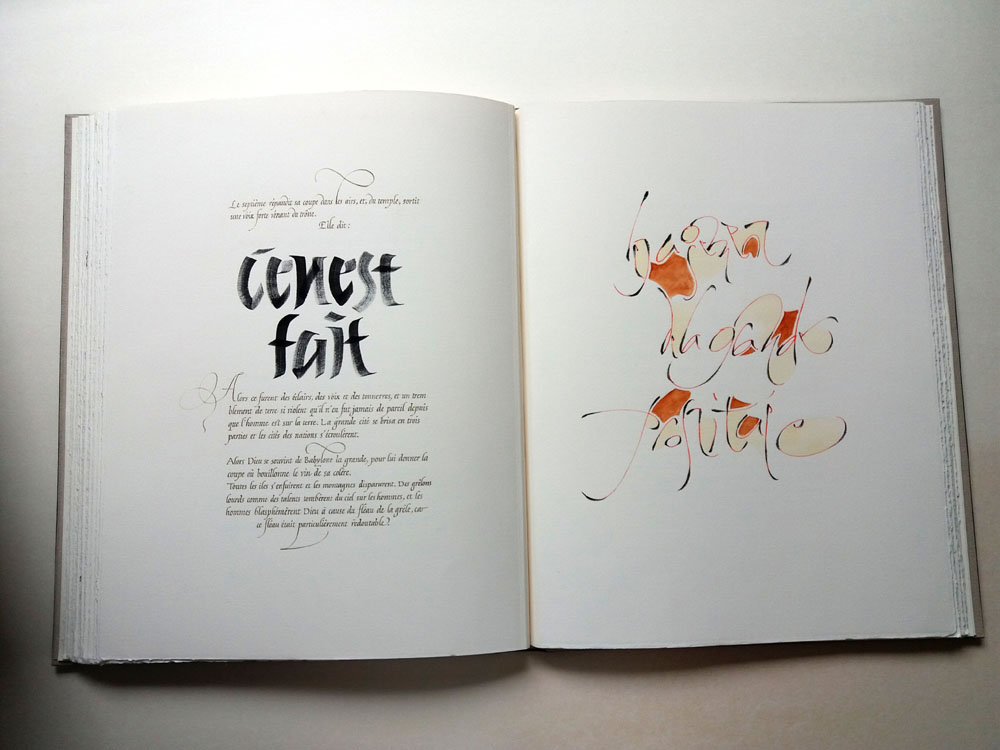 Le septième répandit sa coupe dans les airs, et, du temple, sortit
une voix forte venant du trône.
Elle dit :
c'en est
fait
Alors ce furent des éclairs, des voix et des tonnerres, et un trem
blement de terre si violent qu'il n'en fut jamais de pareil depuis
que l'homme est sur la terre. La grande cité se brisa en trois
parties et les cités des nations s'écroulèrent.
Alors Dieu se souvint de Babylone la grande, pour lui donner la
coupe où bouillonne le vin de sa colère.
Toutes les îles s'enfuirent et les montagnes disparurent. Des grêlons
lourds comme des talents tombèrent du ciel sur les hommes, et les
hommes blasphémèrent Dieu à cause du fléau de la grêle, car
ce fléau était particulièrement redoutable.